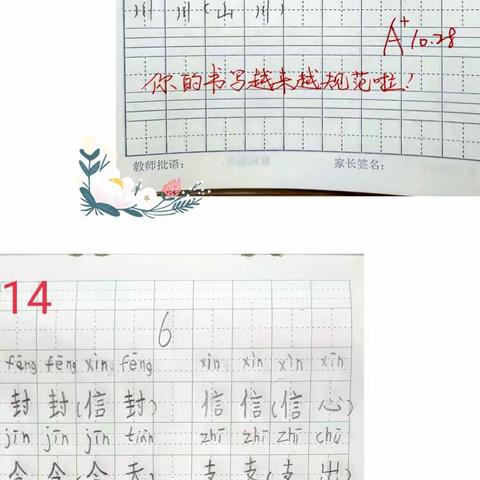 川 川(山 川)
A+ 10.28
你的书写越来越规范啦！
教师批语： 家长签名：
14
6
fēng fēng xìn fēng xìn xìn xìn xīn
封 封(信 封) 信 信(信 心)
jīn jīn jīn tiān zhī zhī zhī chū
今 今(今 天) 支 支(支 出)